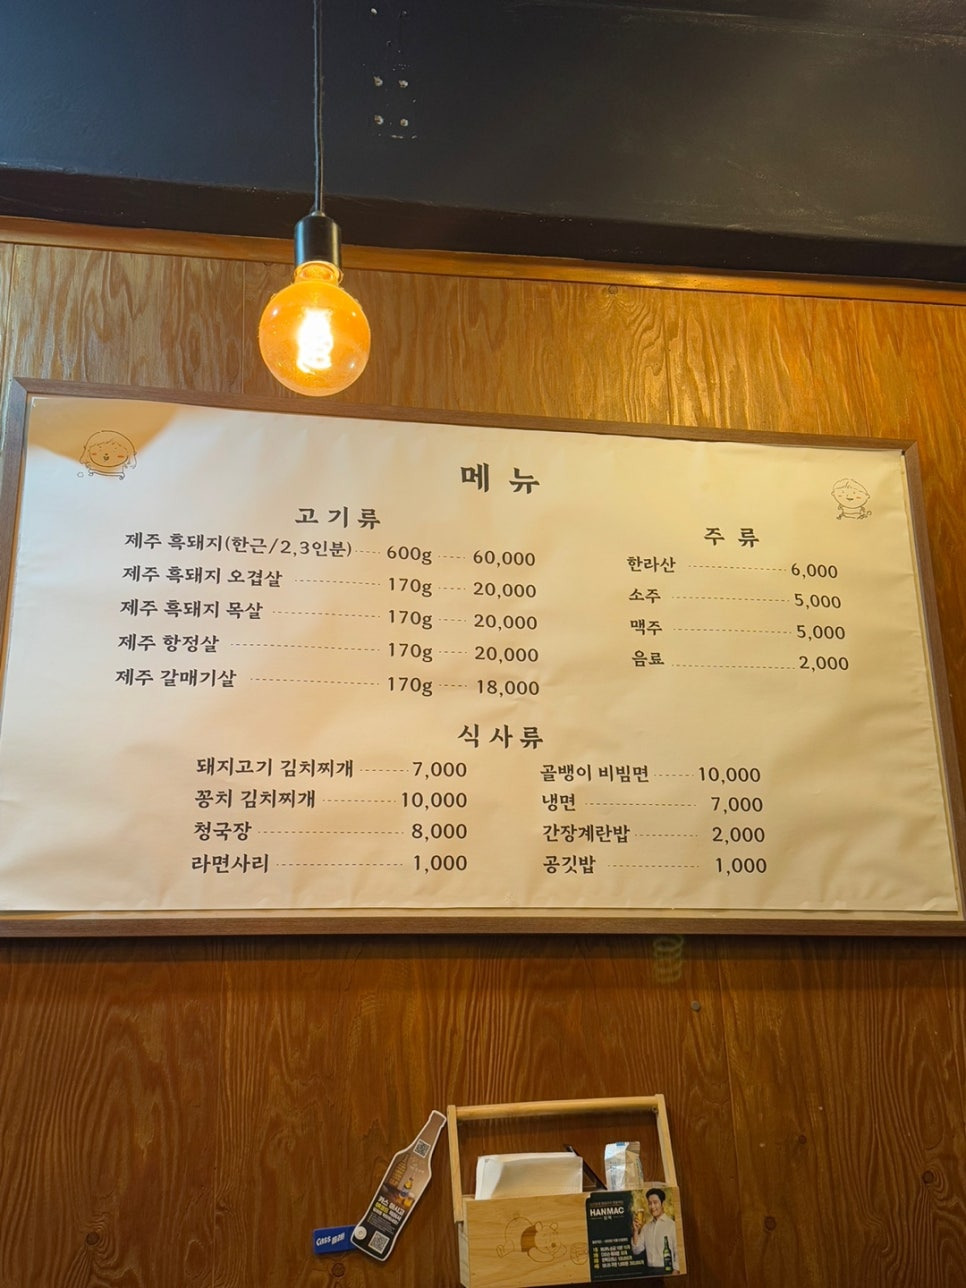 메 뉴
고 기 류
제주 흑돼지(한근/2,3인분) 600g 60,000
제주 흑돼지 오겹살 170g 20,000
제주 흑돼지 목살 170g 20,000
제주 항정살 170g 20,000
제주 갈매기살 170g 18,000
주 류
한라산 6,000
소주 5,000
맥주 5,000
음료 2,000
식 사 류
돼지고기 김치찌개 7,000
꽁치 김치찌개 10,000
청국장 8,000
라면사리 1,000
골뱅이 비빔면 10,000
냉면 7,000
간장계란밥 2,000
공깃밥 1,000
HANMAC